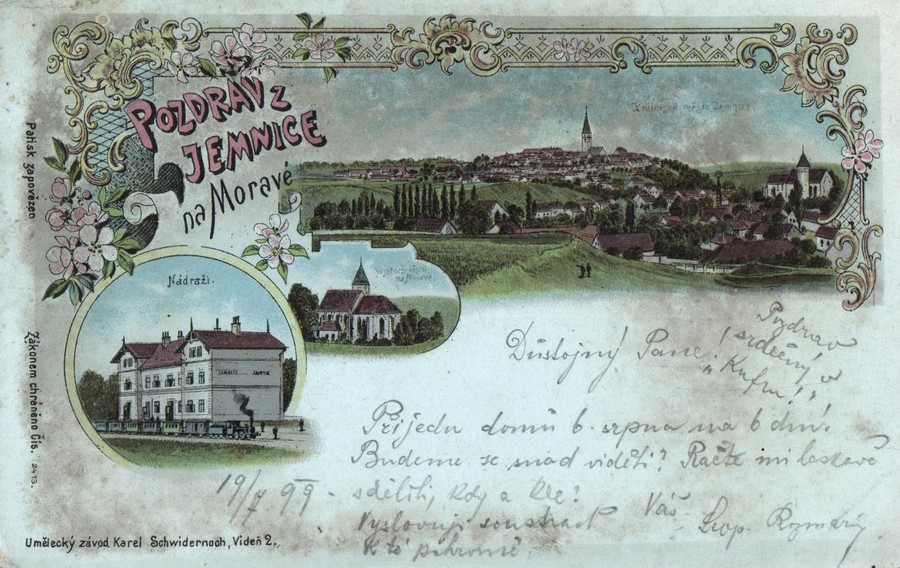 POZDRAV Z
JEMNICE
na Moravě
Královské město Jemnice.
Nádraží.
na Moravě.
JEMNITZ JEMNICE
Patisk zapovězen
Zákonem chráněno Čís. 2413.
Umělecký závod Karel Schwidernoch, Vídeň 2.
Důstojný Pane!
Pozdrav
srdečný v
„Kufru"!
Přijedu domů 6. srpna na 6 dní.
Budeme se snad viděti? Račte mi laskavě
19/7 99 - sděliti, kdy a kde?
Vyslovuji soustrast Váš
K té pohromě. Leop.